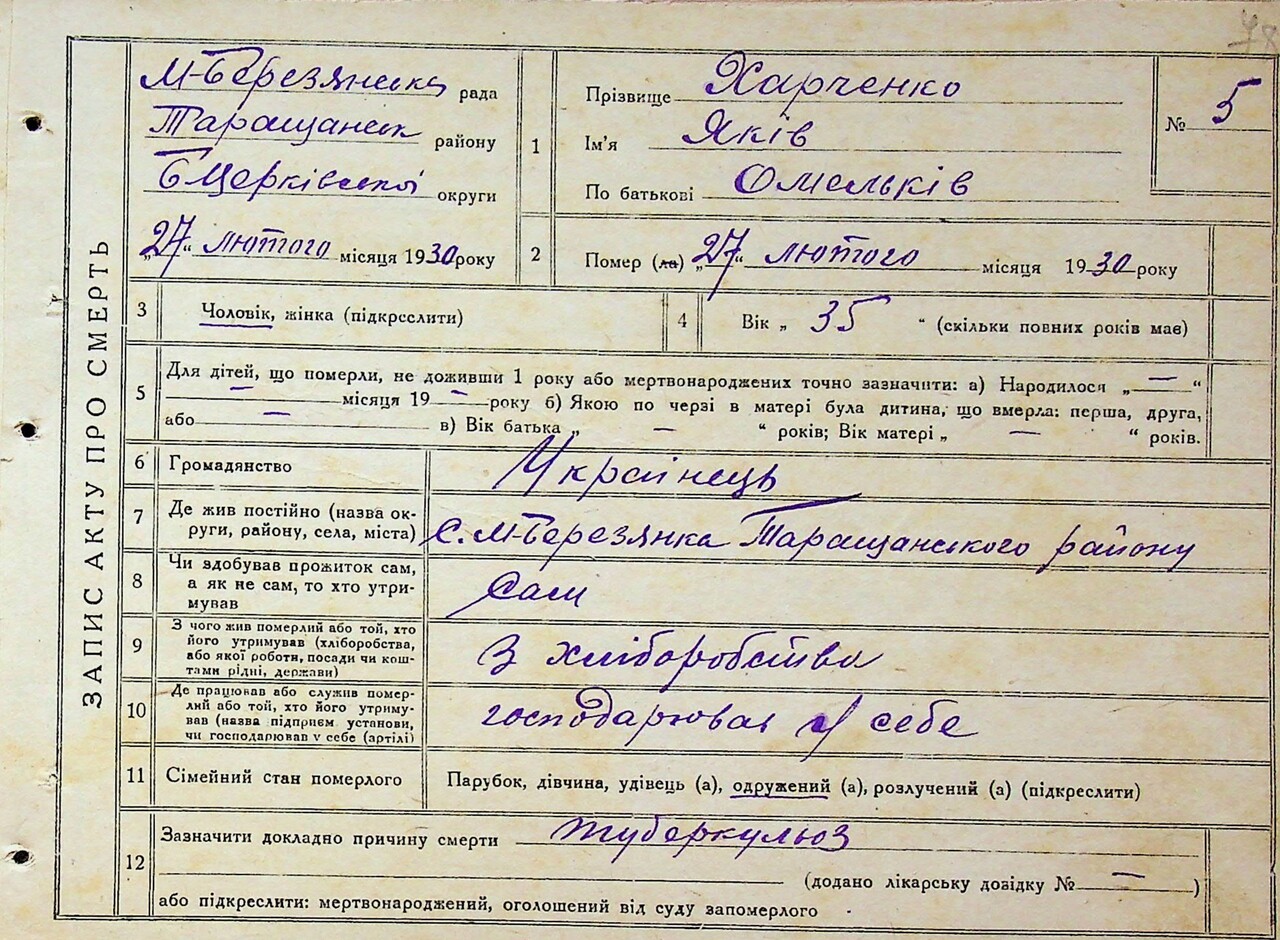 78
ЗАПИС АКТУ ПРО СМЕРТЬ
М-Березянська рада
Таращанськ району
БЦерківської округи
„27“ лютого місяця 1930 року
1
Прізвище Харченко
Ім'я Яків
По батькові Омельків
№ 5
2
Помер (ла) „27“ лютого місяця 1930 року
3
Чоловік, жінка (підкреслити)
4
Вік „ 35 “ (скільки повних років має)
5
Для дітей, що померли, не доживши 1 року або мертвонароджених точно зазначити: а) Народилося „ — “
— місяця 19 — року б) Якою по черзі в матері була дитина, що вмерла: перша, друга,
або — в) Вік батька „ — “ років; Вік матері „ — “ років.
6
Громадянство
Українець
7
Де жив постійно (назва ок-
руги, району, села, міста)
с. М-Березянка Таращанского району
8
Чи здобував прожиток сам,
а як не сам, то хто утри-
мував
Сам
9
З чого жив померлий або той, хто
його утримував (хліборобства,
або якої роботи, посади чи кош-
тами рідні, держави)
З хліборобства
10
Де працював або служив помер-
лий або той, хто його утриму-
вав (назва підприєм. установи,
чи господарював у себе (артілі)
господарював у себе
11
Сімейний стан померлого
Парубок, дівчина, удівець (а), одружений (а), розлучений (а) (підкреслити)
12
Зазначити докладно причину смерти туберкульоз
(додано лікарську довідку № — )
або підкреслити: мертвонароджений, оголошений від суду запомерлого